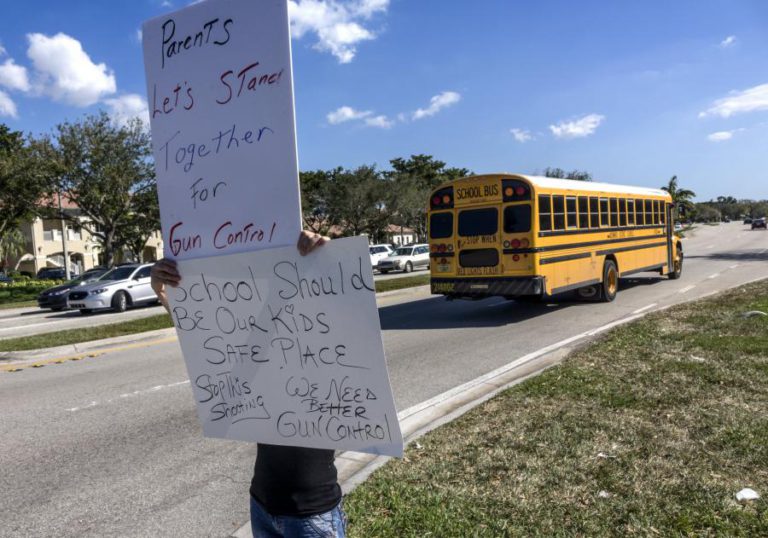 Parents
Let's Stand
Together
For
Gun Control
School Should
Be Our Kids
Safe Place
Stop This
Shooting
We Need
Better
Gun Control
SCHOOL BUS
STOP WHEN
RED LIGHTS FLASH